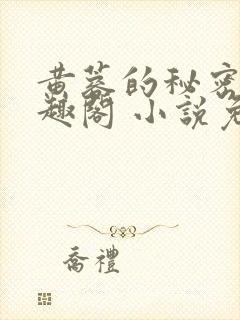 黄蓉的秘密
趣閣 小說免
喬禮